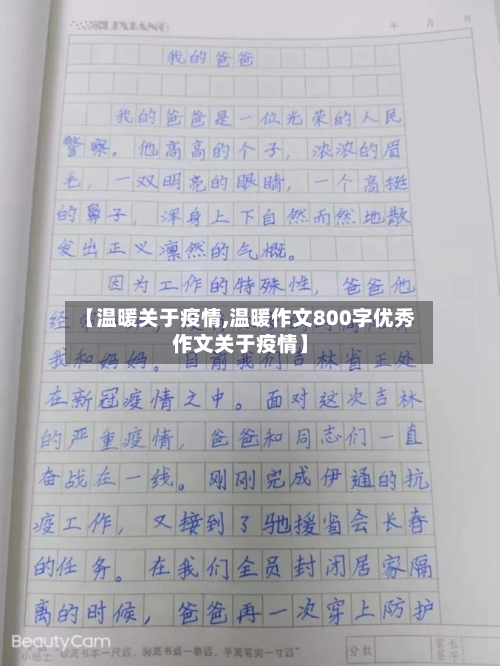 LIXIANG
年 月 日
我的爸爸
我的爸爸是一位光荣的人民
警察。他高高的个子，浓浓的眉
毛，一双明亮的眼睛，一个高挺
的鼻子，浑身上下自然而然地散
发出正义凛然的气概。
因为工作的特殊性，爸爸他
经
【温暖关于疫情,温暖作文800字优秀
作文关于疫情】
我和妈妈。目前我们吉林省正处
在新冠疫情之中。面对这次吉林
的严重疫情，爸爸和同志们一直
奋战在一线。刚刚完成伊通的抗
疫工作，又接到了驰援省会长春
的任务。在我们全员封闭居家隔
离的时候，爸爸再一次穿上防护
BeautyCam
小贴士 眼离书本一尺远，胸离书桌一拳远，手离笔尖一寸远
分数
家长
签字